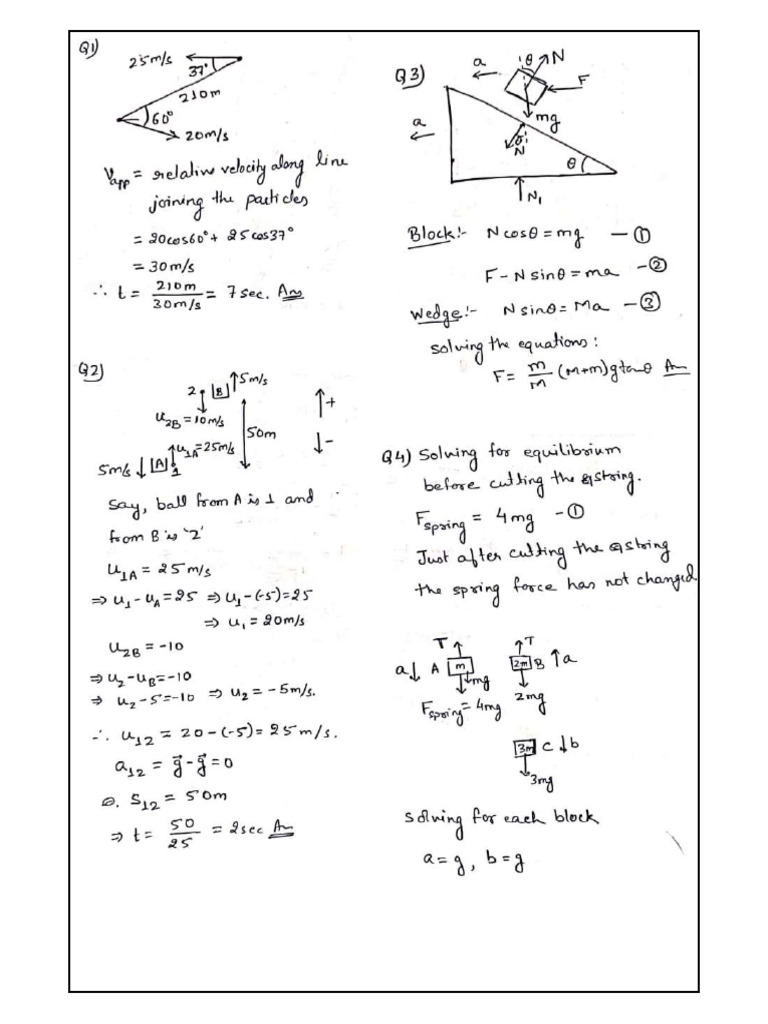 Q1)
25m/s
37°
210m
60°
20m/s
Vapp = relative velocity along line
joining the particles
= 20cos60° + 25cos37°
= 30m/s
∴ t = 210m / 30m/s = 7 sec. Ans
Q2)
2 B 5m/s
u2B = 10m/s
+
-
50m
u1A = 25m/s
5m/s A 1
Say, ball from A is 1 and
from B is '2'
u1A = 25m/s
⇒ u1 - uA = 25 ⇒ u1 - (-5) = 25
⇒ u1 = 20m/s
u2B = -10
⇒ u2 - uB = -10
⇒ u2 - 5 = -10 ⇒ u2 = -5m/s.
∴ u12 = 20 - (-5) = 25m/s.
a12 = g⃗ - g⃗ = 0
S12 = 50m
⇒ t = 50/25 = 2sec Ans
Q3)
a θ N
F
mg
a
θ
N
θ
N1
Block:- Ncosθ = mg — ①
F - Nsinθ = ma — ②
Wedge:- Nsinθ = Ma — ③
solving the equations:
F = m/M (M+m)g tanθ Ans
Q4) Solving for equilibrium
before cutting the string.
Fspring = 4mg — ①
Just after cutting the string
the spring force has not changed
T T
a A m 2m B a
mg
Fspring = 4mg 2mg
3m C b
3mg
solving for each block
a = g, b = g